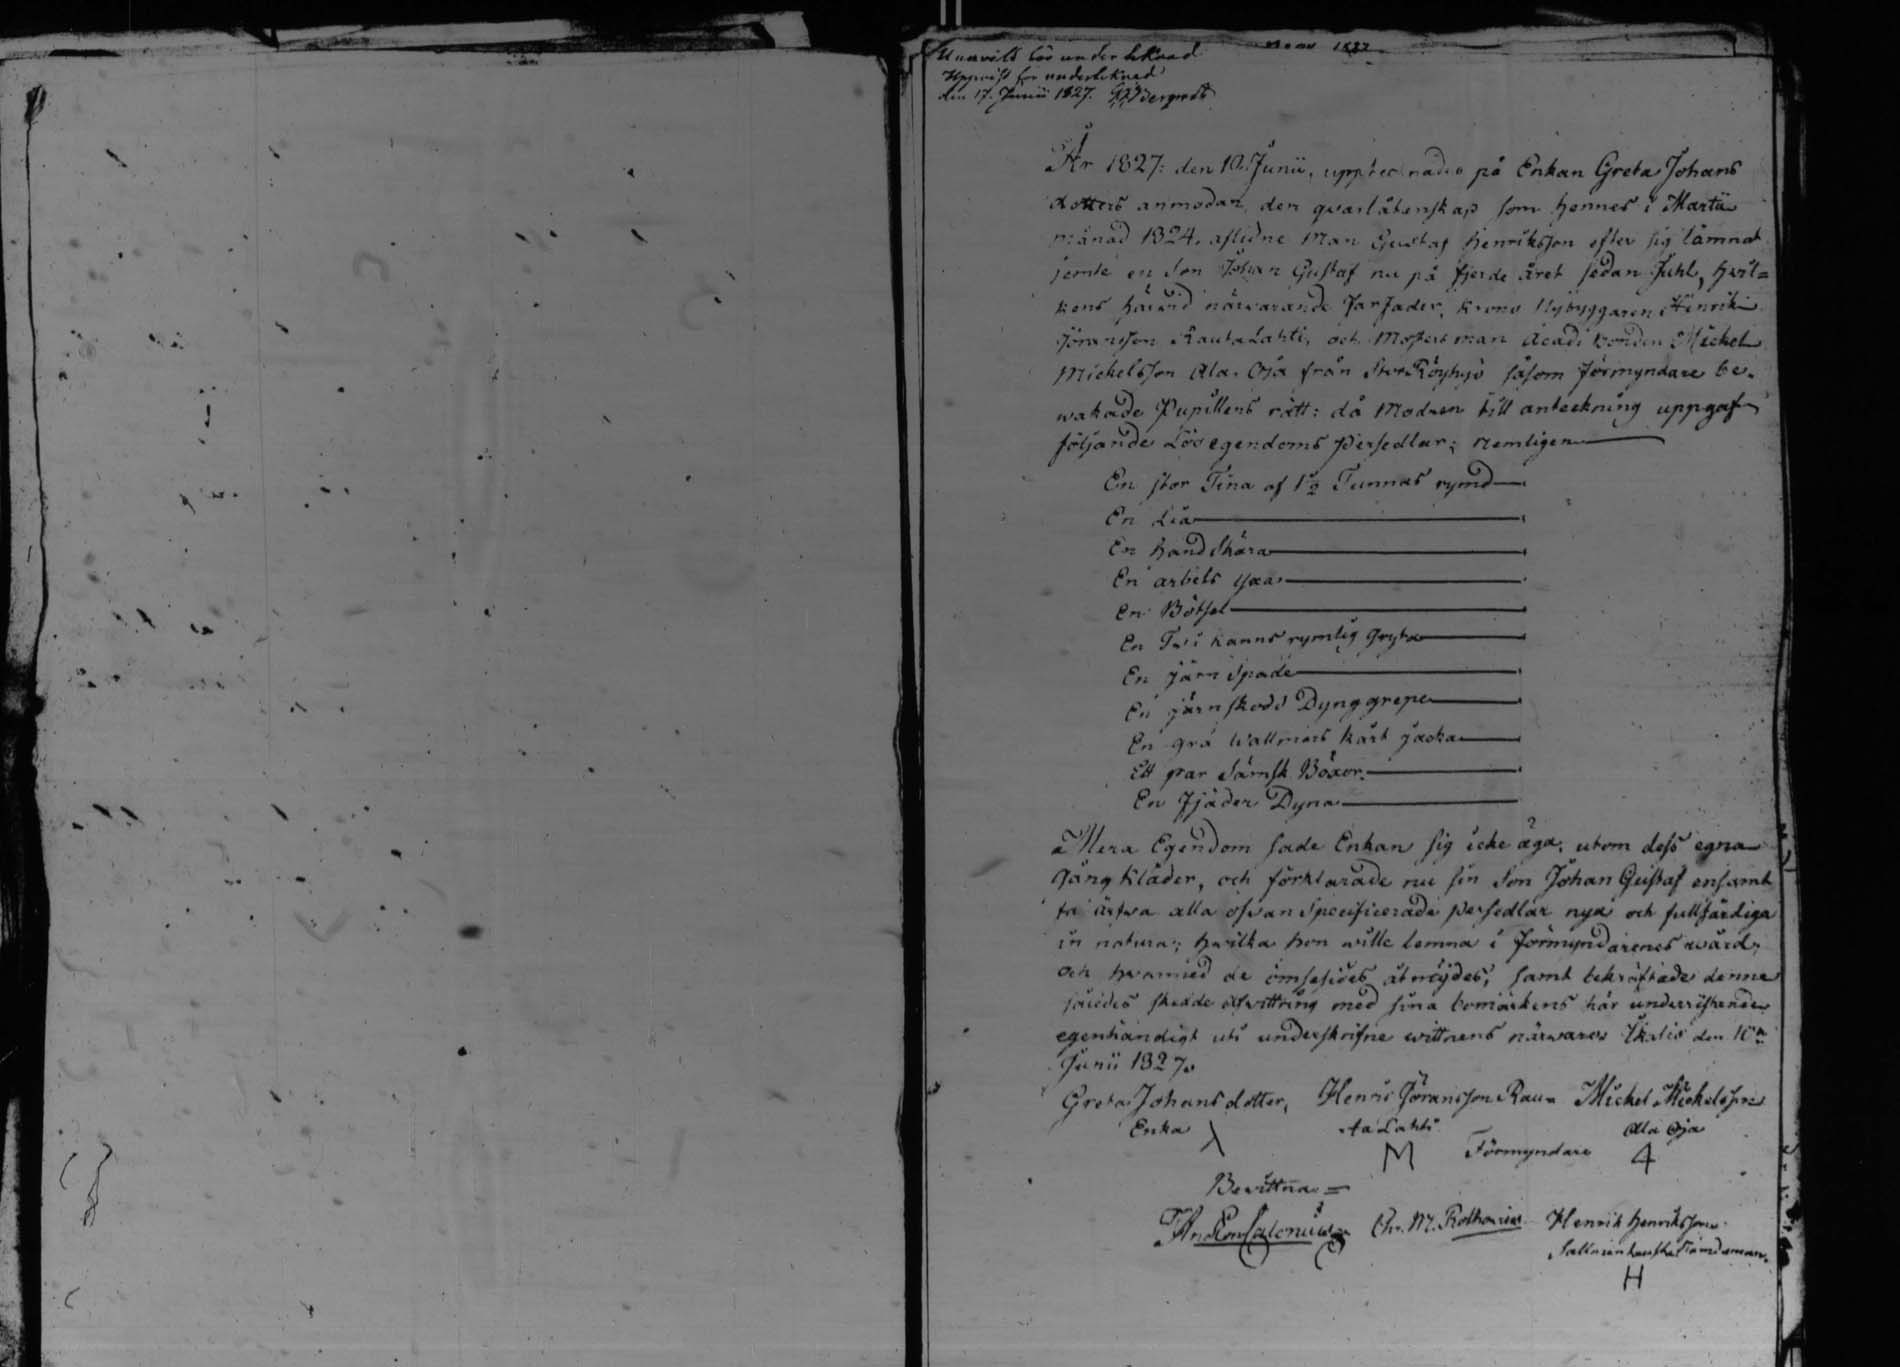 Uppvist för underteknad
den 17. Junii 1827.
År 1827: den 10. Junii, upptecknades på Enkan Greta Johans
dotters anmodan, den qvarlåtenskap som hennes i Martii
månad 1824. aflidne Man Gustaf Henriksson efter sig lämnat
jemte en Son Johan Gustaf nu på fjerde året sedan Juhl, hvil=
kens härvid närvarande Farfader, Krono Nybyggaren Henrik
Göransson Rautalahti, och Mosters man Acad: bonden Michel
Michelsson Ala Oja från såsom förmyndare be-
wakade Pupillens rätt: då Modren till anteckning uppgaf
följande Lös egendoms Persedlar; nemligen
En stor Tina af 1½ Tunnas rymd
En Lia
En hand Skära
En arbets yxa
En Bötsel
En Två kanns rymlig Gryta
En järn Spade
En järnskodd Dynggrepe
En grå Wallmars kårt jacka
Ett par Sämsk Böxor
En Fjäder Dyna
Mera Egendom sade Enkan sig icke äga, utom dess egna
Gångkläder, och förklarade nu sin Son Johan Gustaf ensamt
få ärfwa alla ofwan Specificerade Persedlar nya och fullfärdiga
in natura; hwilka hon wille lemna i Förmyndarenes wård;
och hwarmed de ömsesides åtnöjdes, samt bekräftade denne
således skedde afwittring med sina bomärkens här underristande
egenhändigt uti underskrifne wittnens närwaro den 10de
Junii 1827.
Greta Johans dotter, Henric Göransson Rau= Michel Michelsson
Enka ta Lahti Ala Oja
M Förmyndare 4
Bewittna =
Chr. M. Henrik Henriksson
Nämdeman.
H